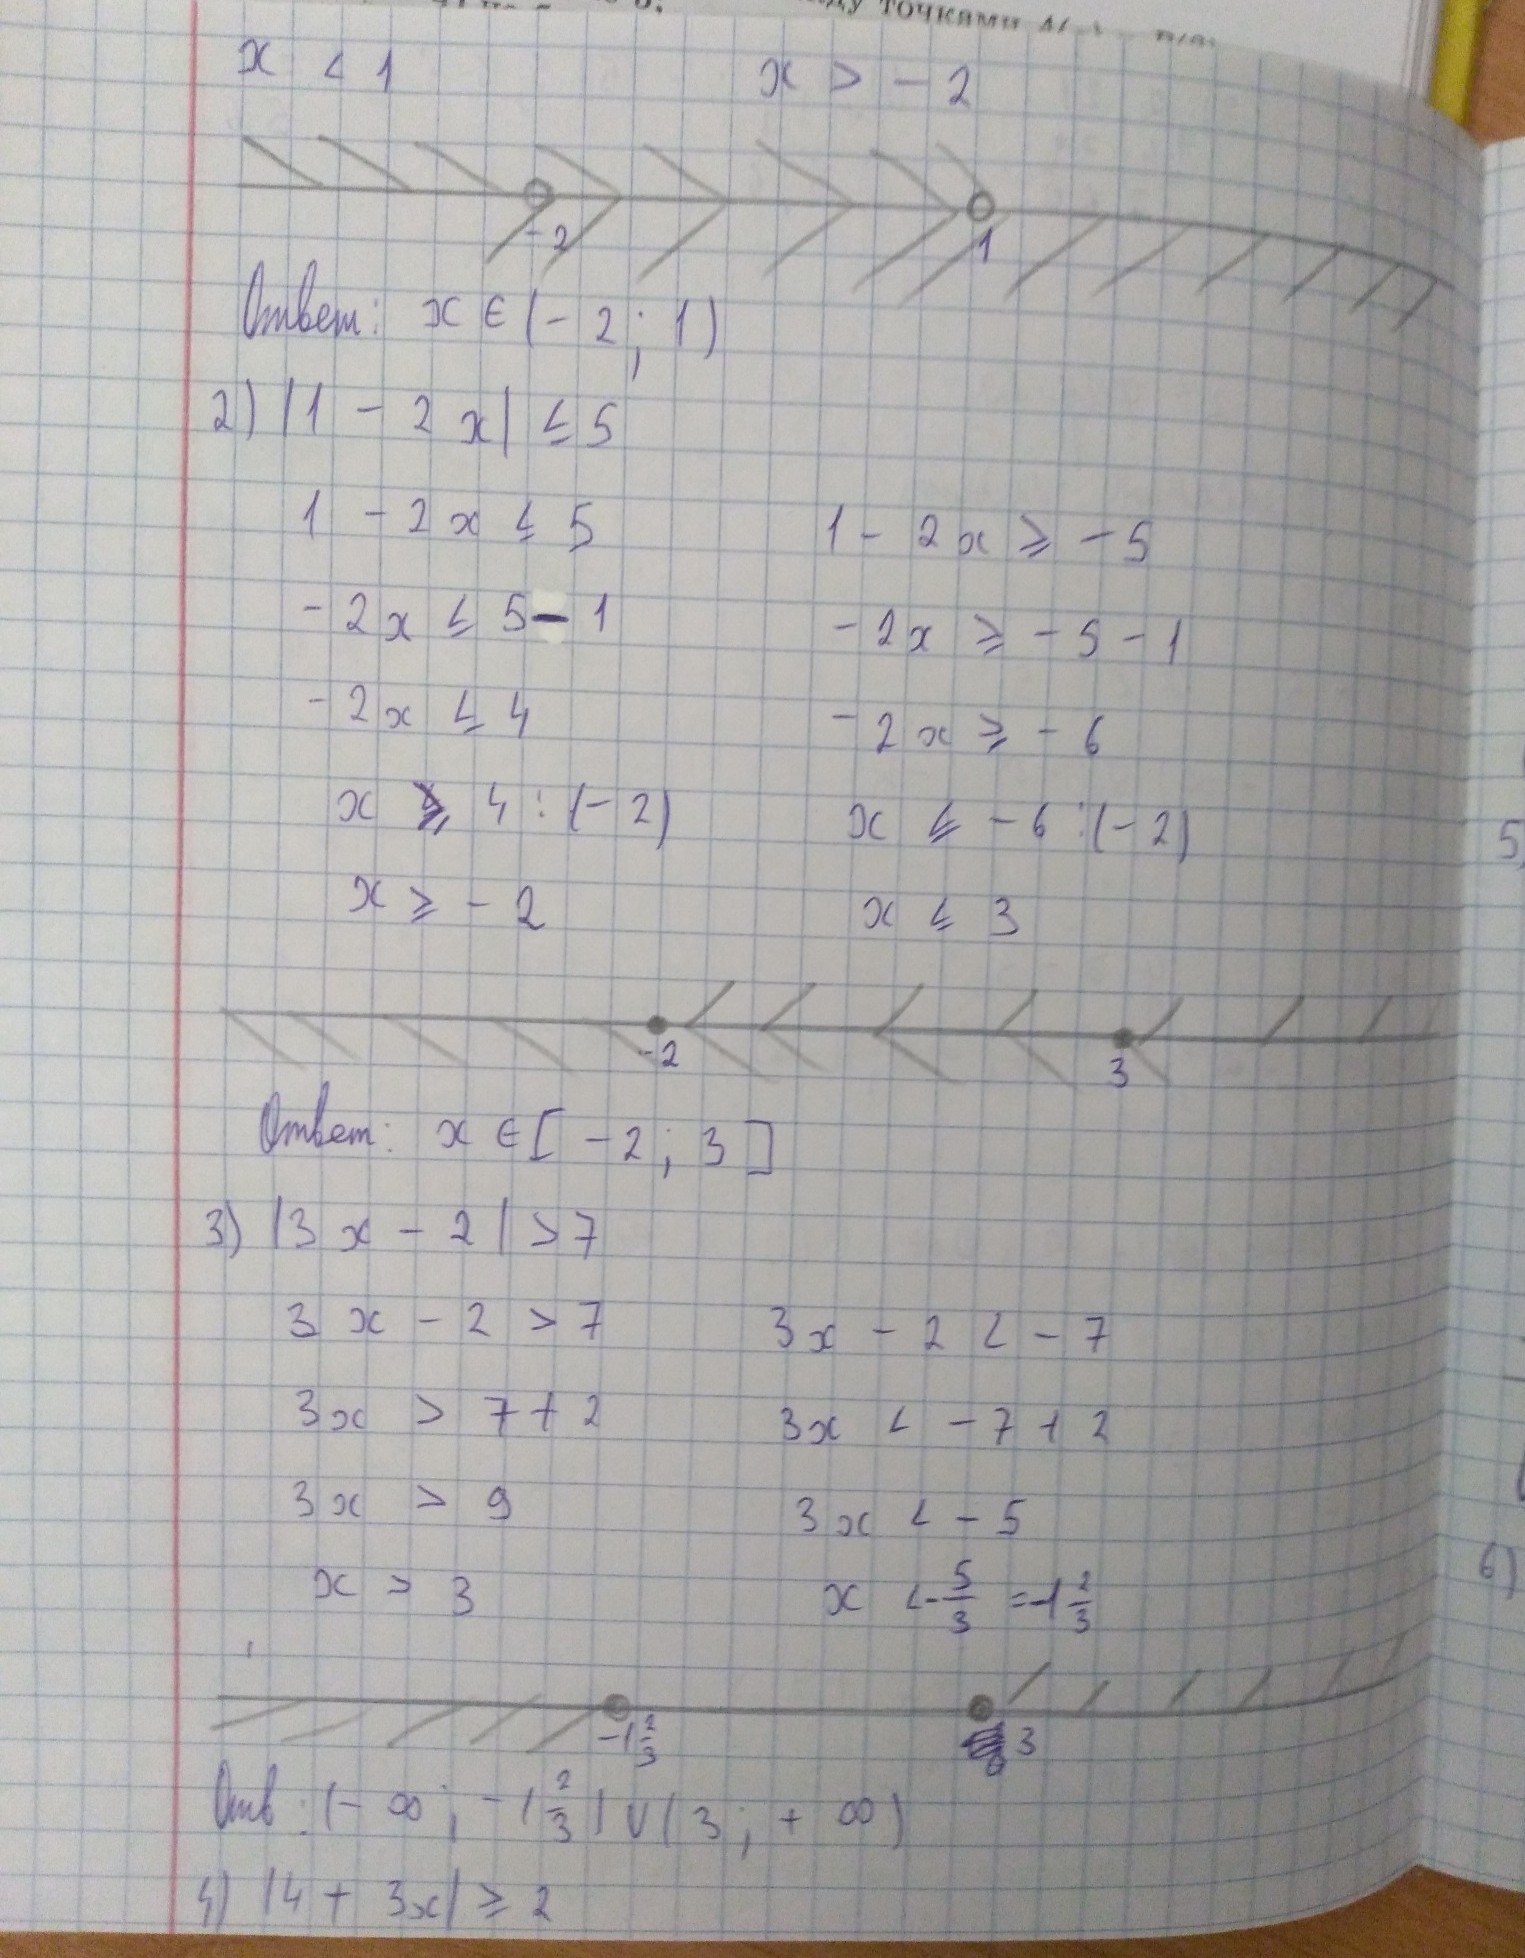 точками
x < 1 x > - 2
-2 1
Ответ: x ∈ (- 2 ; 1)
2) |1 - 2x| ≤ 5
1 - 2x ≤ 5 1 - 2x ≥ - 5
- 2x ≤ 5 - 1 - 2x ≥ - 5 - 1
- 2x ≤ 4 - 2x ≥ - 6
x ≥ 4 : (- 2) x ≤ - 6 : (- 2)
x ≥ - 2 x ≤ 3
-2 3
Ответ: x ∈ [ - 2 ; 3 ]
3) |3x - 2| > 7
3x - 2 > 7 3x - 2 < - 7
3x > 7 + 2 3x < - 7 + 2
3x > 9 3x < - 5
x > 3 x < - 5/3 = -1 2/3
-1 2/3 3
Отв : (- ∞ ; - 1 2/3) ∪ (3 ; + ∞)
4) |4 + 3x| ≥ 2
5)
6)